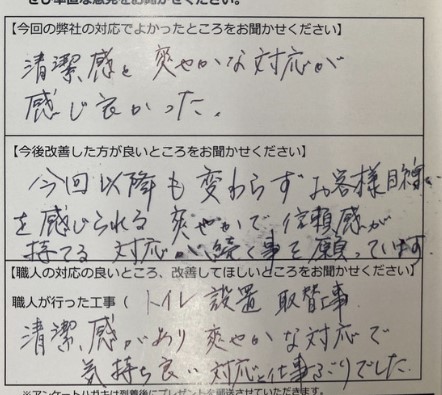 ぜひ率直な意見をお聞かせください。
【今回の弊社の対応でよかったところをお聞かせください】
清潔感と爽やかな対応が
感じ良かった。
【今後改善した方が良いところをお聞かせください】
今回以降も変わらずお客様目線
を感じられる爽やかで信頼感が
持てる対応が続く事を願っています
【職人の対応の良いところ、改善してほしいところをお聞かせください】
職人が行った工事（トイレ設置取替工事
清潔感があり爽やかな対応で
気持ち良い対応と仕事っぷりでした。
※アンケートハガキは到着後にプレゼントを郵送させていただきます。